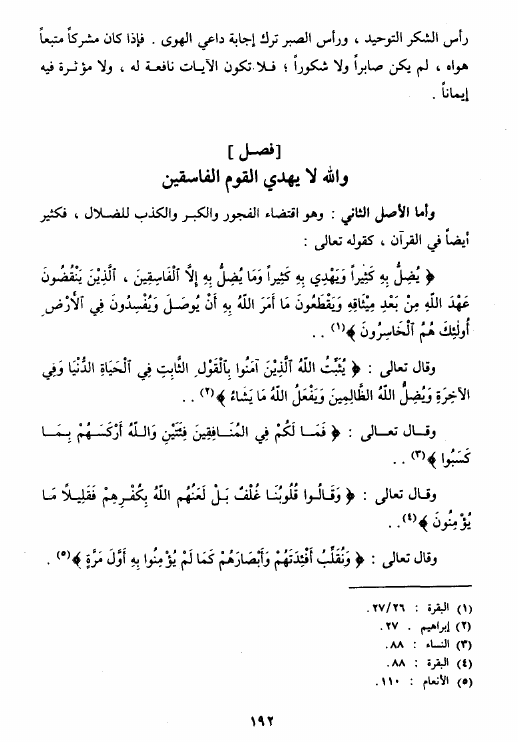 رأس الشكر التوحيد ، ورأس الصبر ترك إجابة داعي الهوى . فإذا كان مشركاً متبعاً
هواه ، لم يكن صابراً ولا شكوراً ؛ فـلا تكون الآيـات نافعـة له ، ولا مؤثـرة فيه
إيماناً .
[ فصـل ]
والله لا يهدي القوم الفاسقين
وأما الأصل الثاني : وهو اقتضاء الفجور والكبر والكذب للضلال ، فكثير
أيضاً في القرآن ، كقوله تعالى :
﴿ يُضِلُّ بِهِ كَثِيراً وَيَهْدِي بِهِ كَثِيراً وَمَا يُضِلُّ بِهِ إِلَّا ٱلْفَاسِقِينَ ، ٱلَّذِينَ يَنْقُضُونَ
عَهْدَ اللهِ مِنْ بَعْدِ مِيْثَاقِهِ وَيَقْطَعُونَ مَا أَمَرَ اللهُ بِهِ أَنْ يُوصَلَ وَيُفْسِدُونَ فِي ٱلْأَرْضِ
أُولٰئِكَ هُمُ ٱلْخَاسِرُونَ ﴾(١) . .
وقال تعالى : ﴿ يُثَبِّتُ اللهُ ٱلَّذِينَ آمَنُوا بِٱلْقَوْلِ الثَّابِتِ فِي ٱلْحَيَاةِ الدُّنْيَا وَفِي
الآخِرَةِ وَيُضِلُّ اللهُ الظَّالِمِينَ وَيَفْعَلُ اللهُ مَا يَشَاءُ ﴾(٢) . .
وقـال تعـالـى : ﴿ فَمَـا لَكُمْ فِي المُنَـافِقِينَ فِئَتَيْنِ وَاللهُ أَرْكَسَهُـمْ بِمَـا
كَسَبُوا ﴾(٣) . .
وقال تعالى : ﴿ وَقَالُـوا قُلُوبُنَا غُلْفٌ بَـلْ لَعَنَهُم اللهُ بِكُفْـرِهِمْ فَقَلِيـلًا مَـا
يُؤْمِنُونَ ﴾(٤) . .
وقال تعالى : ﴿ وَنُقَلِّبُ أَفْئِدَتَهُمْ وَأَبْصَارَهُمْ كَمَا لَمْ يُؤْمِنُوا بِهِ أَوَّلَ مَرَّةٍ ﴾(٥) .
(١) البقرة : ٢٧/٢٦.
(٢) إبراهيم . ٢٧.
(٣) النساء : ٨٨.
(٤) البقرة : ٨٨.
(٥) الأنعام : ١١٠.
١٩٢